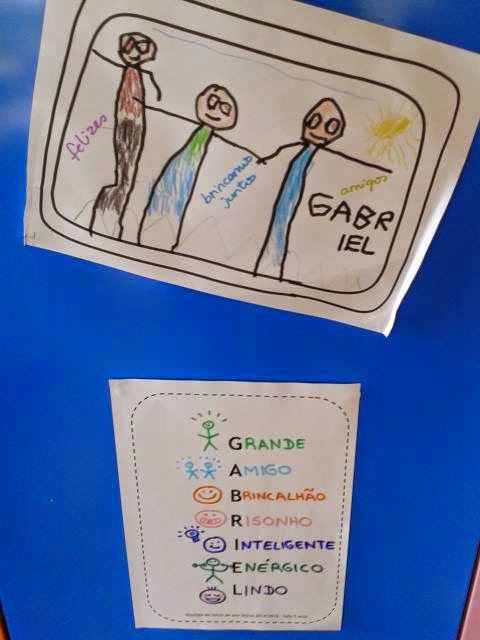 felizes
brincamos
juntos
amigos
GABR
IEL
GRANDE
AMIGO
BRINCALHÃO
RISONHO
INTELIGENTE
ENÉRGICO
LINDO